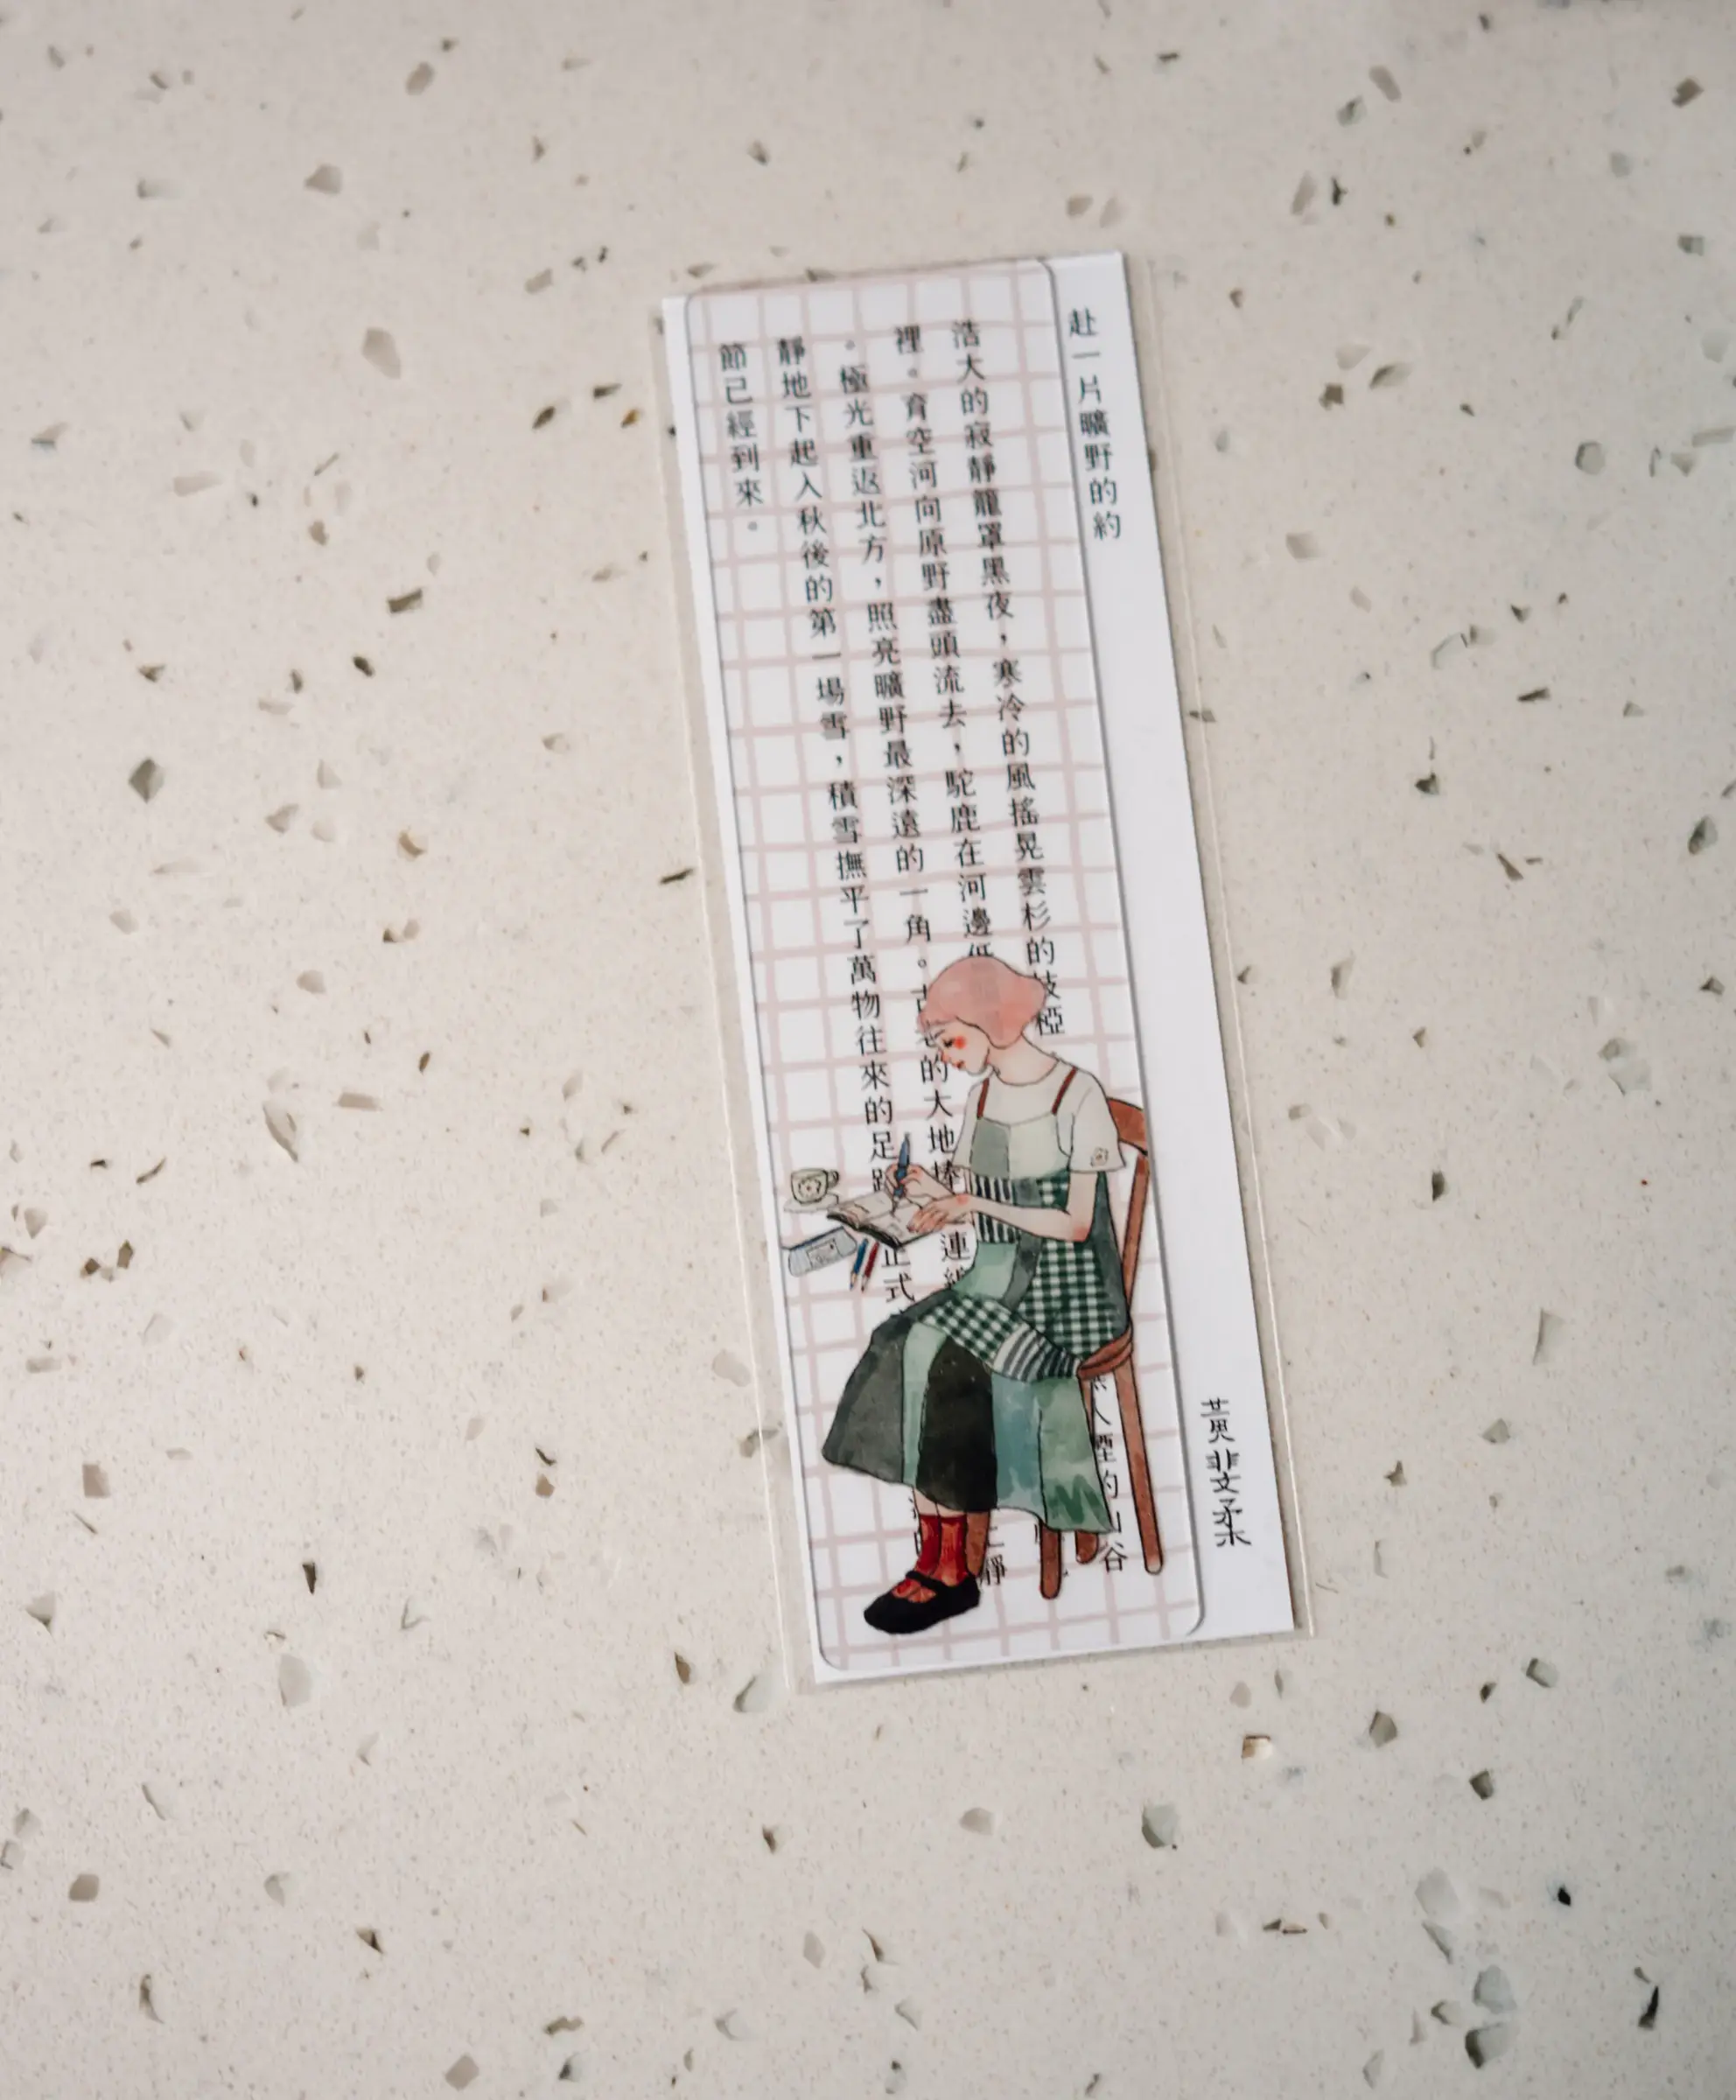 赴一片曠野的約
浩大的寂靜籠罩黑夜，寒冷的風搖晃雲杉的枝椏 人煙的山谷
裡。育空河向原野盡頭流去，駝鹿在河邊低
。極光重返北方，照亮曠野最深遠的一角。古老的大地捧 連綿 靜
靜地下起入秋後的第一場雪，積雪撫平了萬物往來的足跡 正式
節已經到來。
黃斐柔